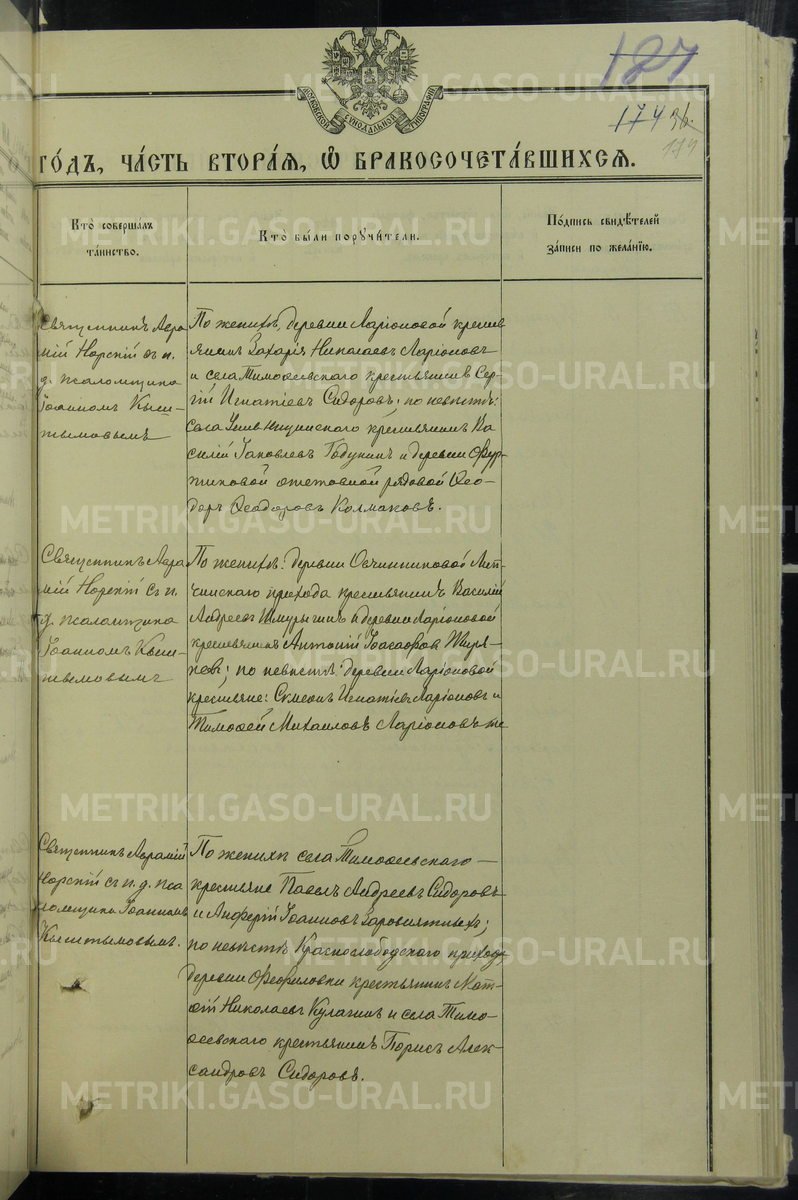 127
174 36.
179
МОСКОВСКОЙ СУНОДАЛЬНОЙ ТИПОГРАФІИ
ГО́ДЪ, ЧА́СТЬ ВТОРА́Я, Ѿ БРАКОСОЧЕТА́ВШИХСЯ.
Кто̀ соверша́лъ
та́инство.
Кто̀ бы́ли порꙋчи́тели.
По́дпись свидѣ́телей
за́писи по жела́нїю.
Священникъ Авра
мій Норскій съ и.
д. псаломщика
Іоанномъ Кыш-
тымовымъ
По женихѣ, деревни Ларіоновой кресть
янинъ Захарія Николаевъ Ларіоновъ
и села Тимоѳеевскаго крестьянинъ Сер-
гій Игнатіевъ Сидоровъ; по невѣстѣ:
села Усть Ницинскаго крестьянинъ Ва
силій Іаковлевъ Годунинъ и деревни
отставной рядовой Ѳео-
доръ Ѳеодоровъ Колмаковъ.
Священникъ Авра
мій Норскій съ и.
д. псаломщика
Іоанномъ Кыш-
тымовымъ
По женихѣ: деревни Овчинниковой Лип-
чинскаго прихода крестьянинъ Василій
Андреевъ и деревни Ларіоновой
крестьянинъ Антоній Іоасафовъ
по невѣстѣ: деревни Ларіоновой
крестьяне: Симеонъ Игнатіевъ Ларіоновъ и
Тимоѳей Михаиловъ Ларіоновъ же
Священникъ Аврамій
Норскій съ и. д. пса
ломщика Іоанномъ
Кыштымовымъ.
По женихѣ села Тимоѳеевскаго
крестьяне Павелъ Андреевъ Сидоровъ
и Анферій Іоанновъ Заровнятныхъ;
по невѣстѣ Краснослободскаго прихода,
деревни Ѳеофиловки крестьянинъ Мат-
ѳій Николаевъ Кулагинъ и села Тимо-
ѳеевскаго крестьянинъ Борисъ Алек-
сандровъ Сидоровъ.
METRIKI.GASO-URAL.RU